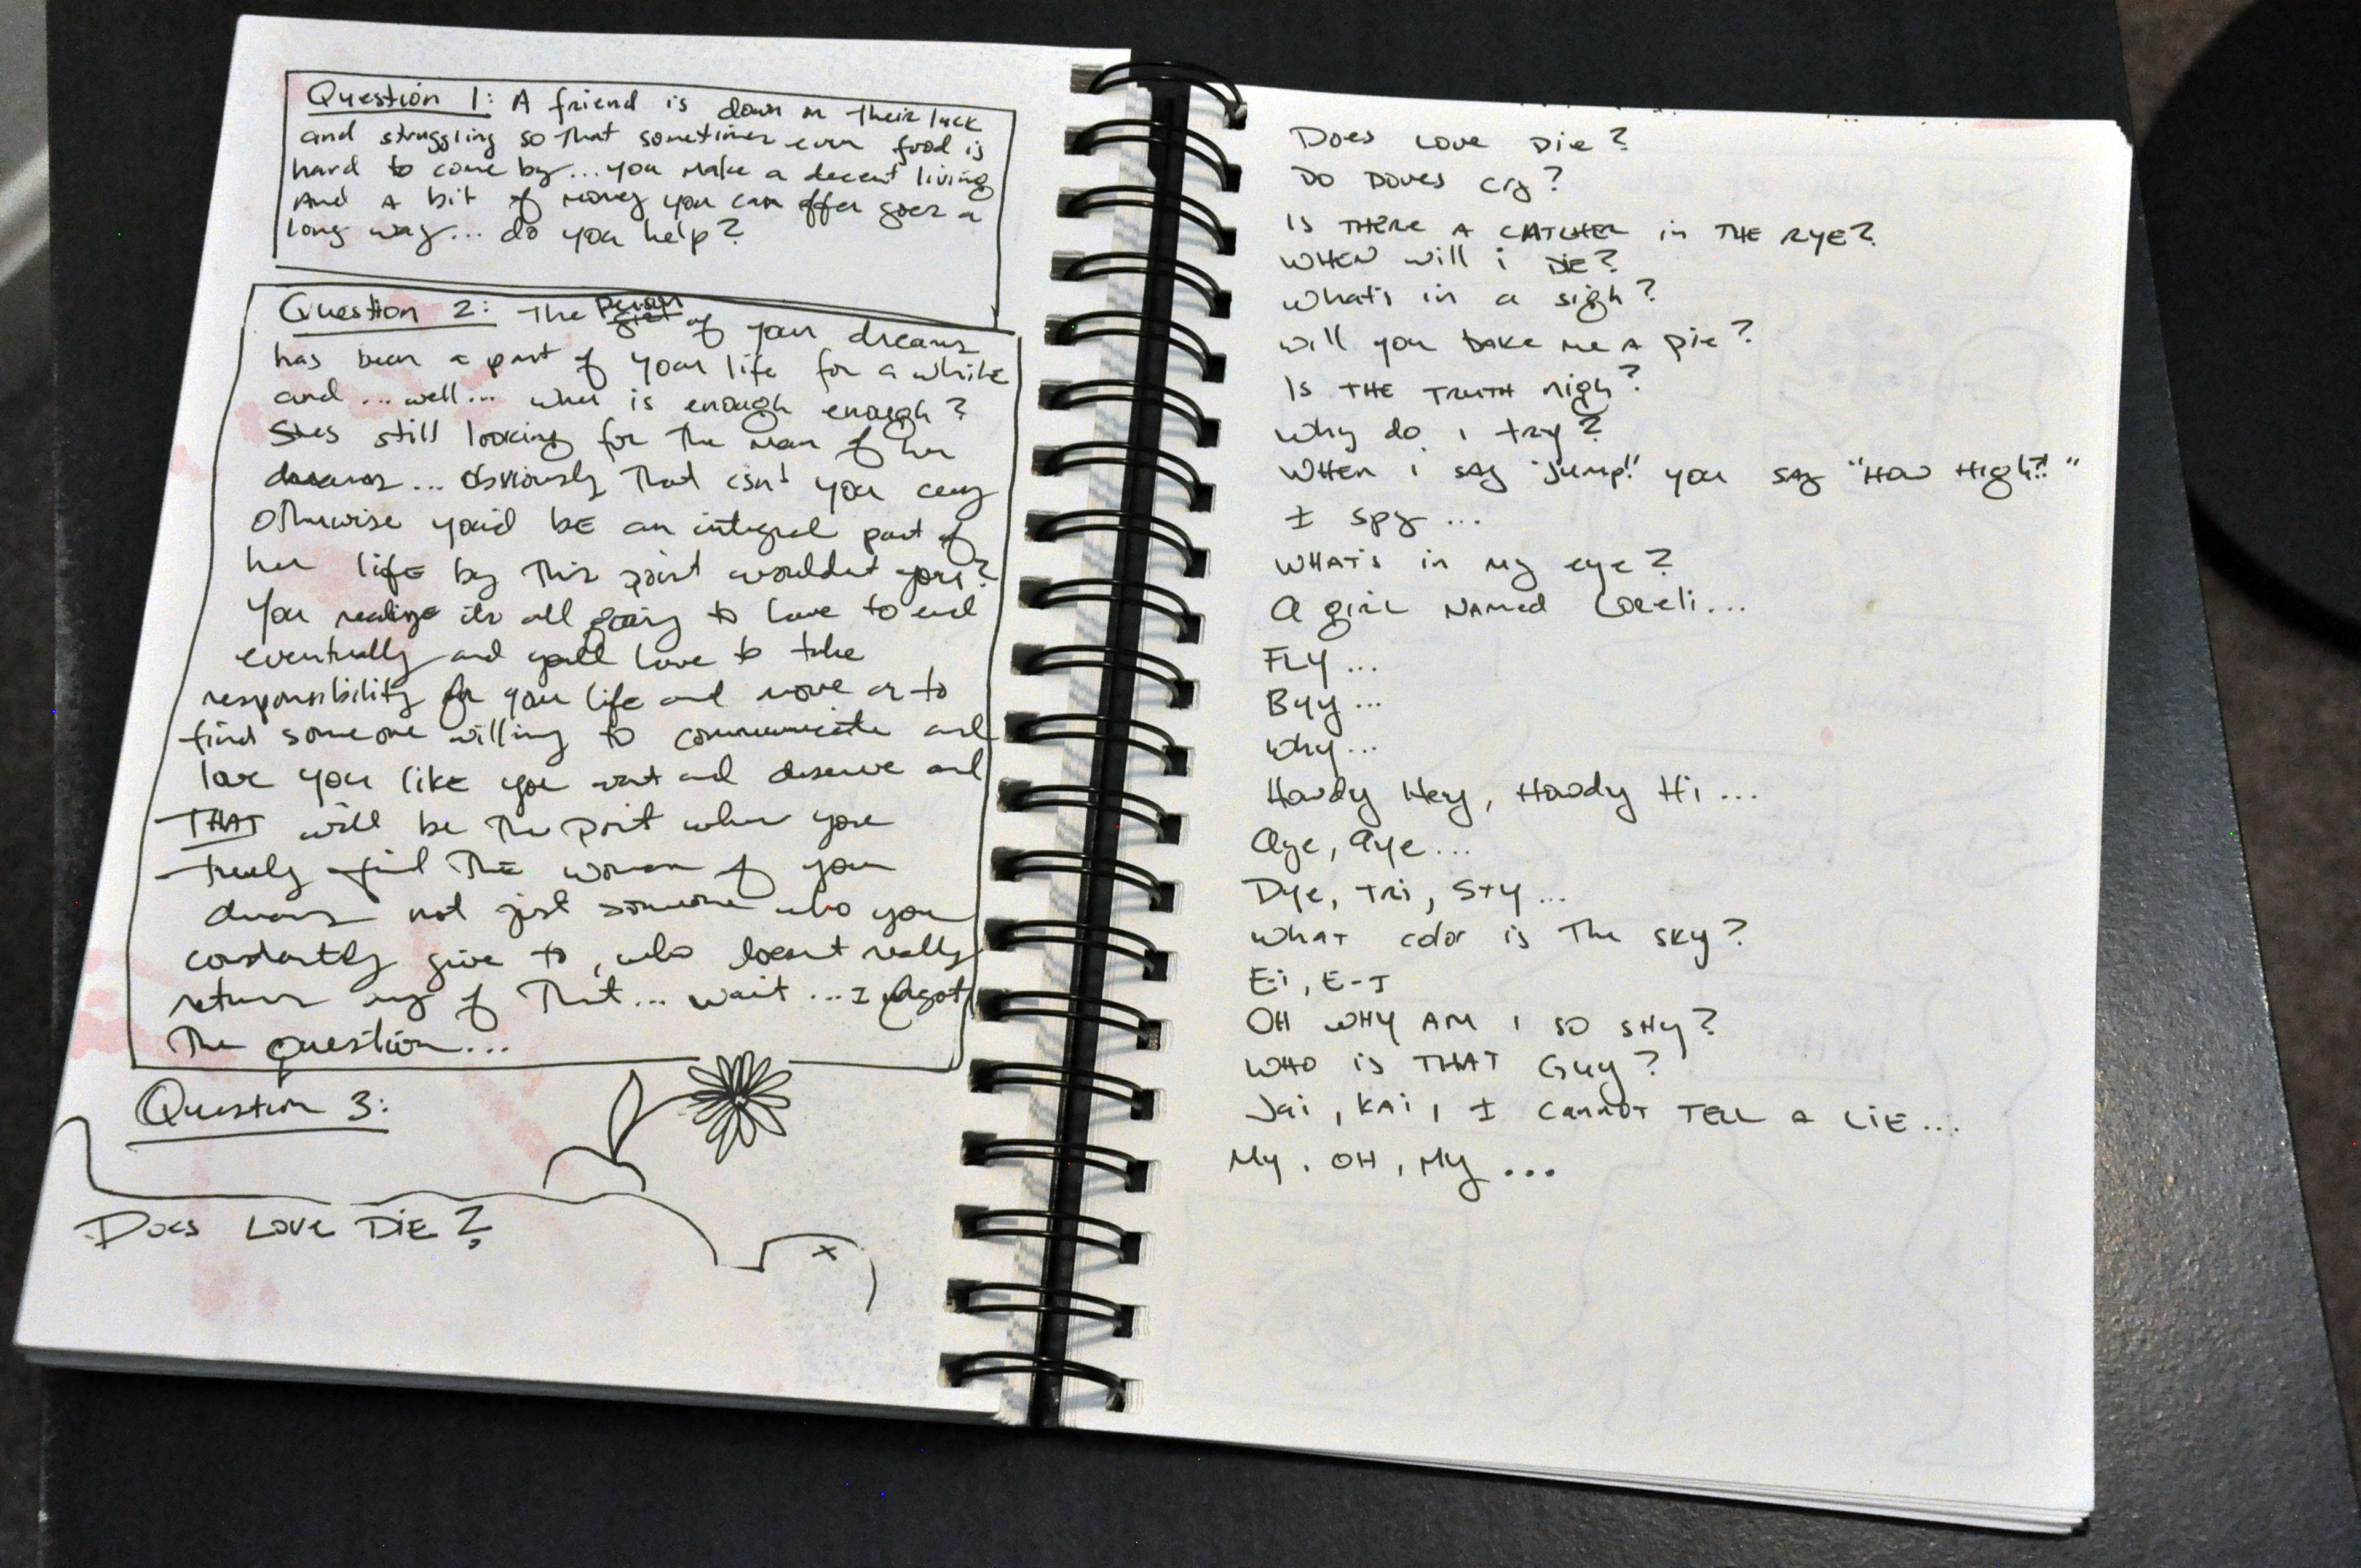 Question 1: A friend is down on their luck
and struggling so that sometimes even food is
hard to come by... you make a decent living
And a bit of money you can offer goes a
long way... do you help?
Question 2: The person of your dreams
has been a part of your life for a while
and... well... when is enough enough?
Shes still looking for the man of her
dreams... obviously that isn't you cuz
otherwise you'd be an integral part of
her life by this point wouldnt you?
You realize its all going to have to end
eventually and you'll have to take
responsibility for your life and move on to
find someone willing to communicate and
love you like you want and deserve and
THAT will be the point when you
truly find the woman of your
dreams not just someone who you
constantly give to, who doesnt really
return any of that... wait... I forgot
the question...
Question 3:
Does Love Die?
Does Love Die?
Do Doves cry?
Is THERE A CATCHER in THE RYE?
WHEN will i DIE?
What's in a sigh?
Will you bake me A pie?
Is THE TRUTH nigh?
Why do i try?
WHEN i SAy "Jump!" you SAy "HOW HigH?!"
I spy...
WHAT's in my eye?
A girl NAMED Loreli...
FLY...
Byy...
Why...
Howdy Hey, Howdy Hi...
Aye, aye...
Dye, Tri, STy...
What color is The sky?
Ei, E-I
OH WHY AM I SO SHy?
WHO is THAT Guy?
Jai, KAi, I CANNOT TELL A LiE...
My, OH, My...